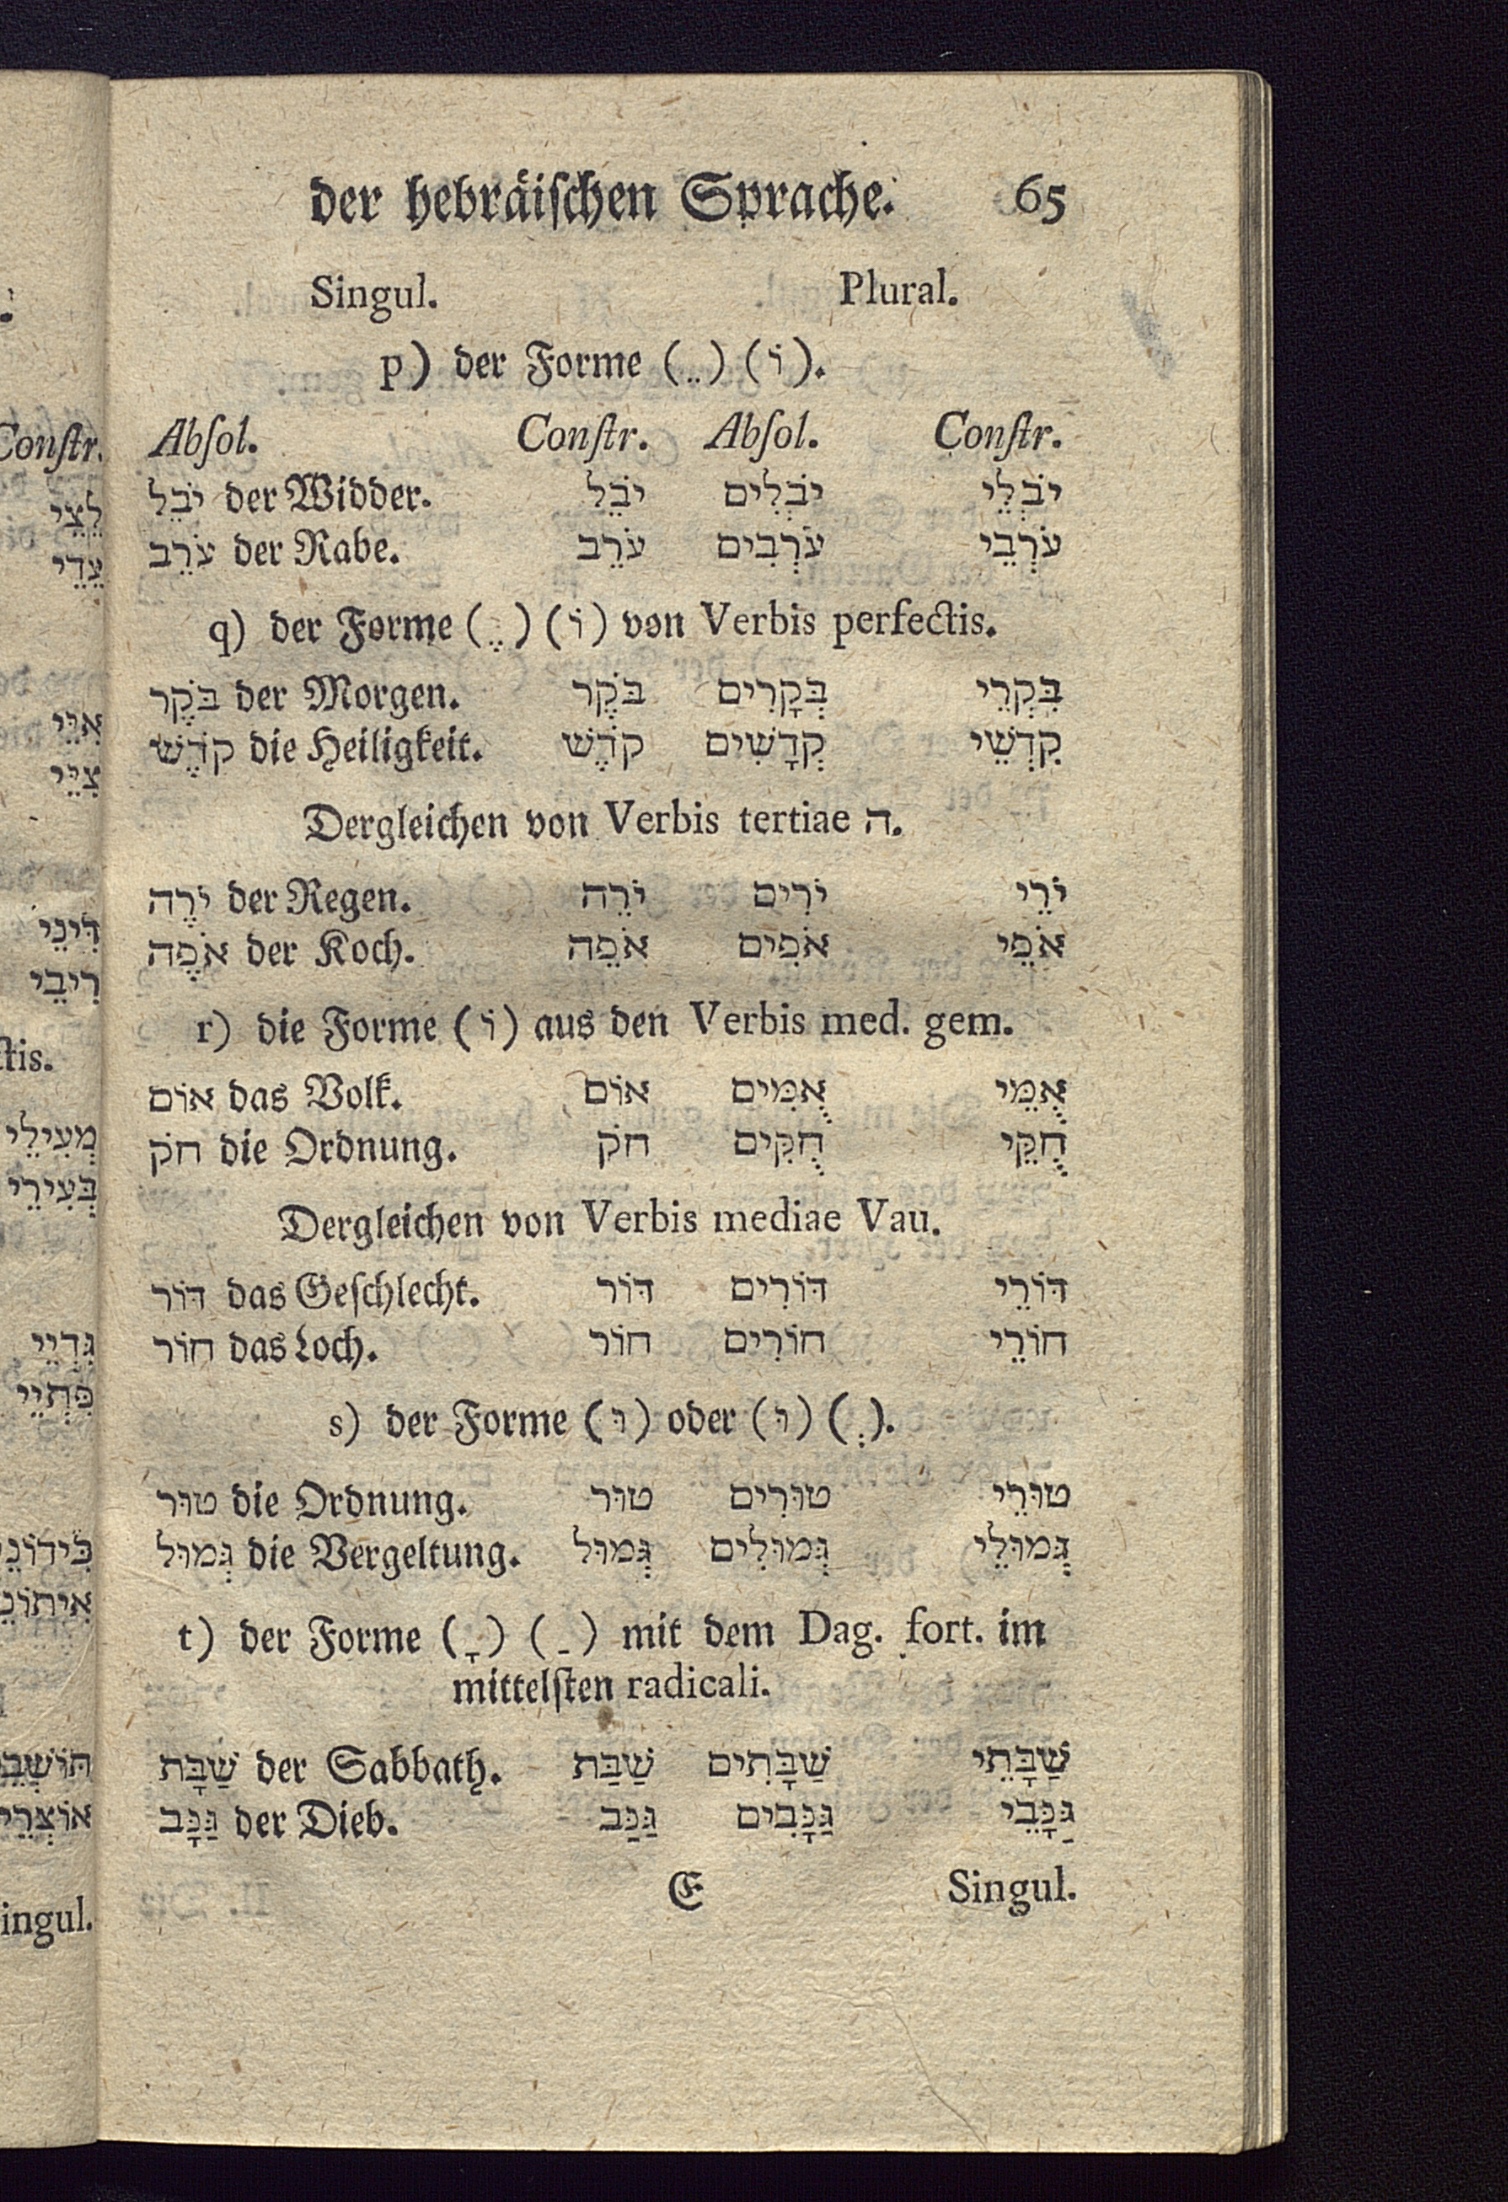 der hebräiſchen Sprache. 65
Singul. Plural.
p) der Forme (ֵ) (וֹ).
Abſol. Conſtr. Abſol. Conſtr.
יֹבֵל der Widder. יֹבֵל יֹבְלִים יֹבְלֵי
עֹרֵב der Rabe. עֹרֵב עֹרְבִים עֹרְבֵי
q) der Forme (ֶ) (וֹ) von Verbis perfectis.
בֹּקֶר der Morgen. בֹּקֶר בְּקָרִים בִּקְרֵי
קֹדֶשׁ die Heiligkeit. קֹדֶשׁ קְדָשִׁים קִדְשֵׁי
Dergleichen von Verbis tertiae ה.
יֹרֶה der Regen. יֹרֵה יֹרִים יֹרֵי
אֹפֶה der Koch. אֹפֵה אֹפִים אֹפֵי
r) die Forme (וֹ) aus den Verbis med. gem.
אוֹם das Volk. אוֹם אֻמִּים אֻמֵּי
חֹק die Ordnung. חֹק חֻקִּים חֻקֵּי
Dergleichen von Verbis mediae Vau.
דּוֹר das Geſchlecht. דּוֹר דּוֹרִים דּוֹרֵי
חוֹר das Loch. חוֹר חוֹרִים חוֹרֵי
s) der Forme (וּ) oder (וּ) (ְ).
טוּר die Ordnung. טוּר טוּרִים טוּרֵי
גְּמוּל die Vergeltung. גְּמוּל גְּמוּלִים גְּמוּלֵי
t) der Forme (ָ) (ַ) mit dem Dag. fort. im
mittelſten radicali.
שַׁבָּת der Sabbath. שַׁבַּת שַׁבָּתִים שַׁבָּתֵי
גַּנָּב der Dieb. גַּנַּב גַּנָּבִים גַּנָּבֵי
E Singul.
Conſtr.
לֵצֵי
עֵדֵי
דִּינֵי
רִיבֵי
מְעִילֵי
בְּעִירֵי
גְּדְיֵי
אוֹצְרֵי
ingul.